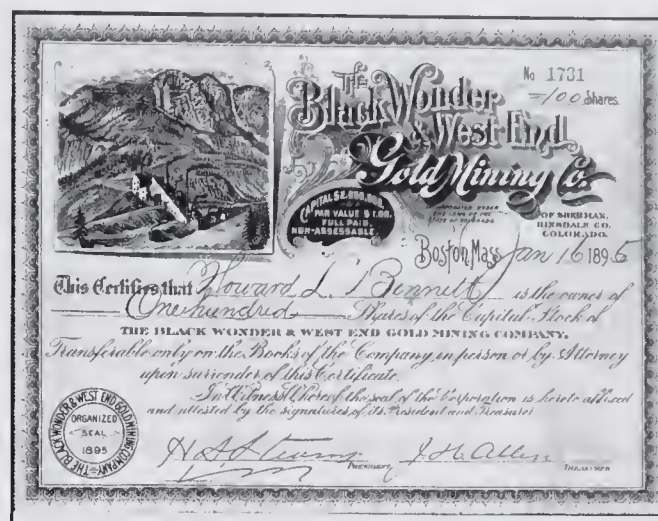 No 1731
100 Shares.
The
Black Wonder
& West End
Gold Mining Co.
CAPITAL $2,000,000.
PAR VALUE $1.00.
FULL PAID
NON-ASSESSABLE.
INCORPORATED UNDER
THE LAWS OF THE
STATE OF COLORADO.
OF SHERMAN,
HINSDALE CO.
COLORADO.
Boston, Mass Jan 16 1895
This Certifies that Howard L. Bennett is the owner of
One hundred Shares of the Capital Stock of
THE BLACK WONDER & WEST END GOLD MINING COMPANY,
Transferable only on the Books of the Company, in person or by Attorney
upon surrender of this Certificate.
In Witness Whereof the seal of the Corporation is hereto affixed
and attested by the signatures of its President and Treasurer
THE BLACK WONDER & WEST END GOLD MINING COMPANY
ORGANIZED
SEAL
1895
PRESIDENT J. H. Allen TREASURER